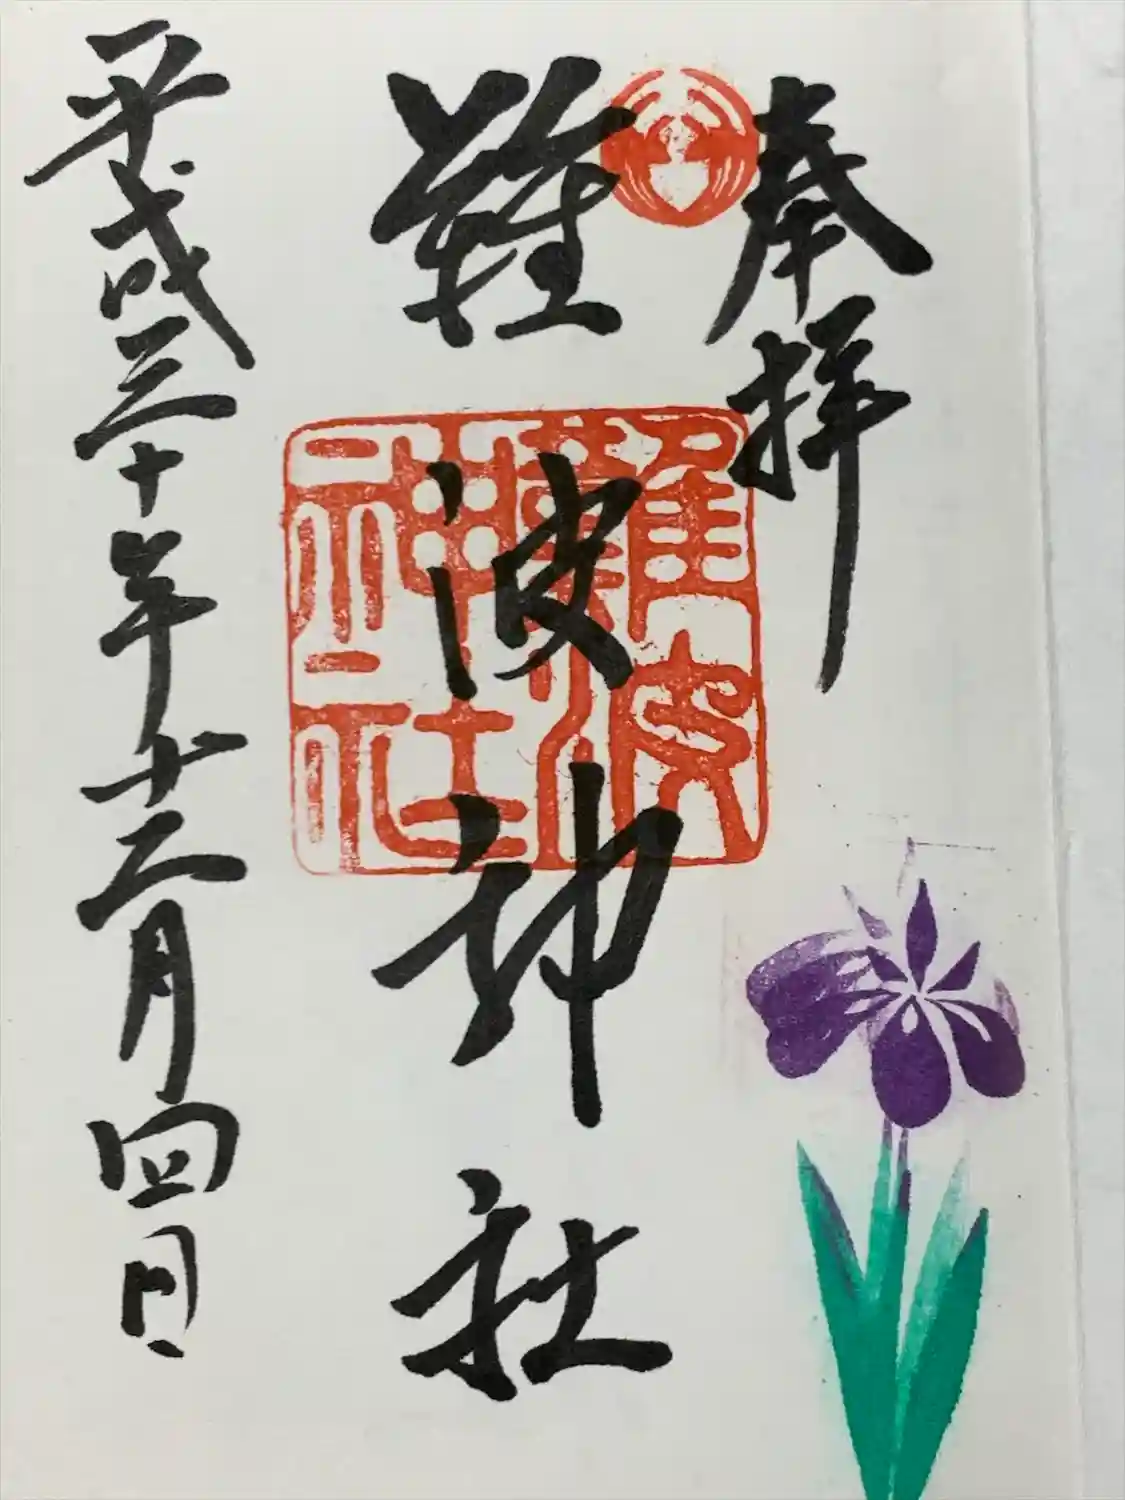 奉拝
難波神社
平成三十年十二月四日
難波
神社